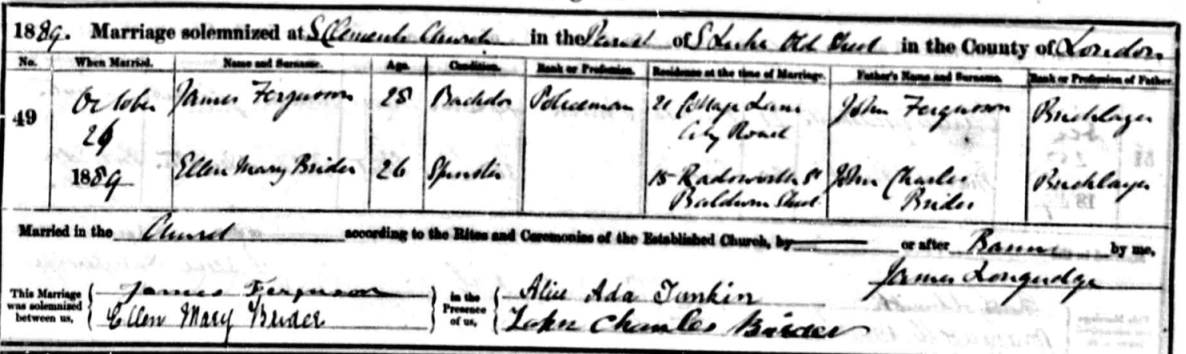 1889. Marriage solemnized at S Clements Church in the Parish of S Luke Old Street in the County of London
No. When Married. Name and Surname. Age. Condition. Rank or Profession. Residence at the time of Marriage. Father's Name and Surname. Rank or Profession of Father.
49 October 26 1889 James Fergusson 28 Bachelor Policeman 21 Cottage Lane City Road John Fergusson Bricklayer
Ellen Mary Brider 26 Spinster 15 Radsworth St Baldwin Street John Charles Brider Bricklayer
Married in the Church according to the Rites and Ceremonies of the Established Church, by or after Banns by me,
James
This Marriage was solemnized between us, James Ferguson Ellen Mary Brider in the Presence of us, Alice Ada Tunkin John Charles Brider